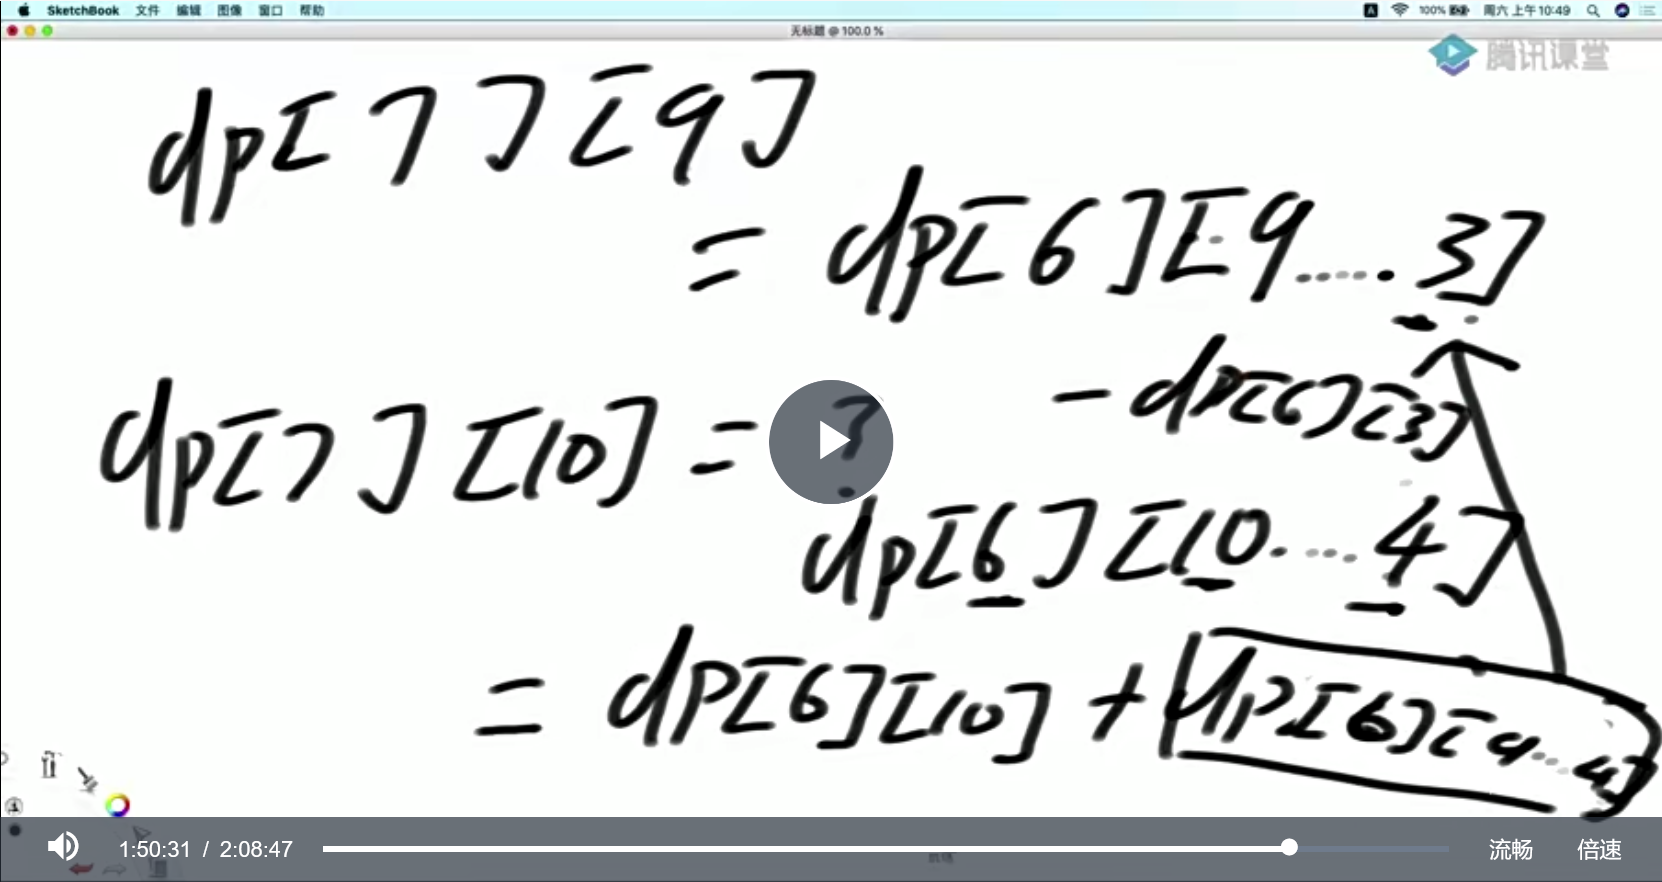 SketchBook 文件 编辑 图像 窗口 帮助 A 100% 周六 上午10:49
无标题 @ 100.0 %
腾讯课堂
dp[7][9]
= dp[6][9.....3]
- dp[6][3]
dp[7][10] = ?
dp[6][10....4]
= dp[6][10] + dp[6][9...4]
1:50:31 / 2:08:47 流畅 倍速